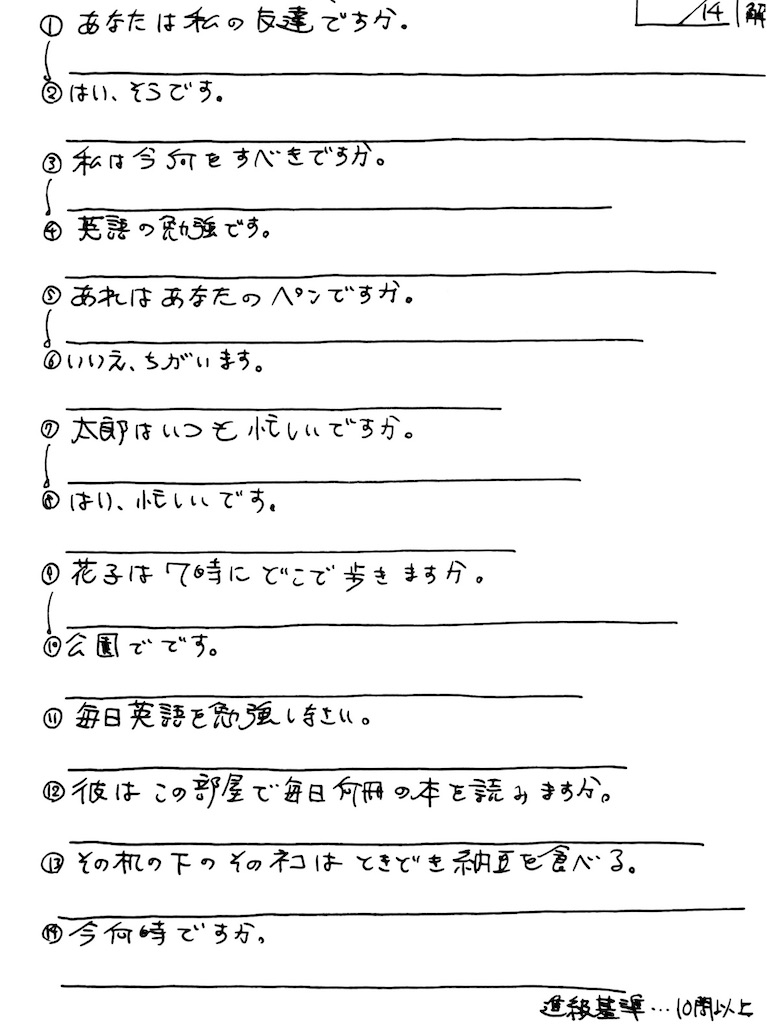 /14 解
① あなたは私の友達ですか。
② はい、そうです。
③ 私は今何をすべきですか。
④ 英語の勉強です。
⑤ あれはあなたのペンですか。
⑥ いいえ、ちがいます。
⑦ 太郎はいつも忙しいですか。
⑧ はい、忙しいです。
⑨ 花子は7時にどこで歩きますか。
⑩ 公園でです。
⑪ 毎日英語を勉強しなさい。
⑫ 彼はこの部屋で毎日何冊の本を読みますか。
⑬ その机の下のそのネコはときどき納豆を食べる。
⑭ 今何時ですか。
進級基準…10問以上